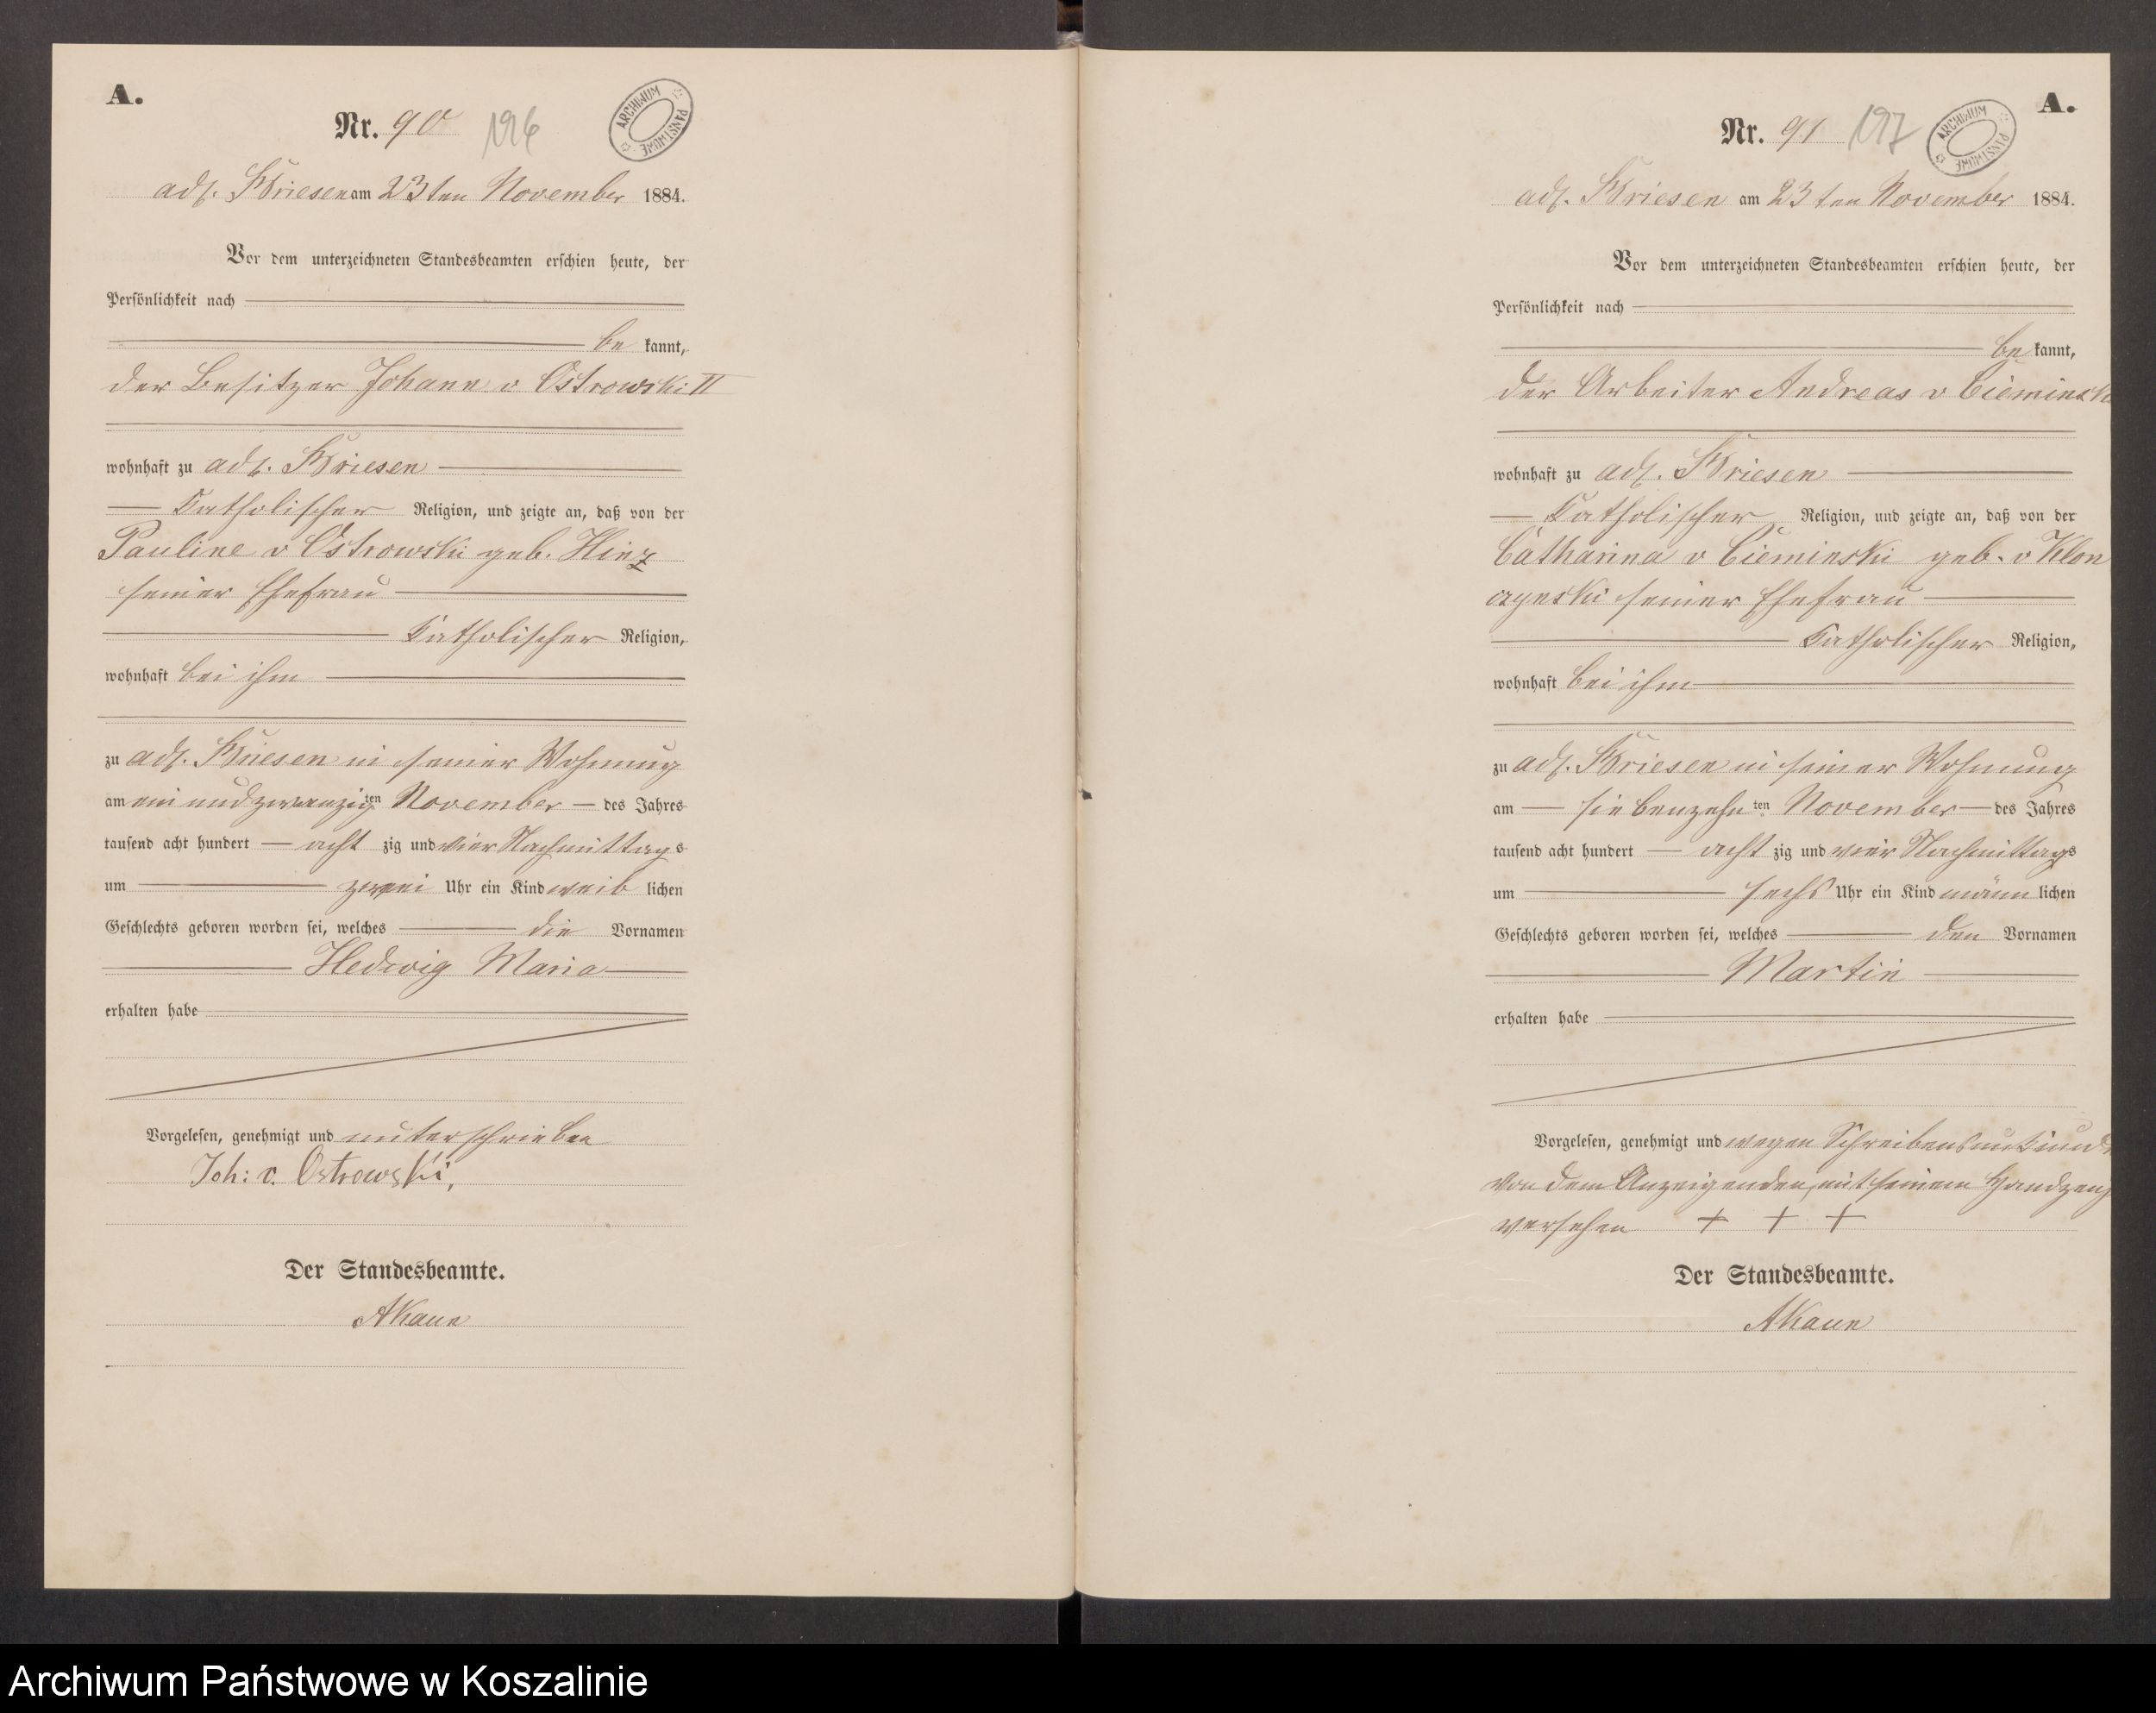 A.
Nr. 90 196
ARCHIWUM PAŃSTWOWE
adl. Briesen am 23ten November 1884.
Vor dem unterzeichneten Standesbeamten erschien heute, der
Persönlichkeit nach
be kannt,
der Besitzer Johann v Ostrowski II
wohnhaft zu adl. Briesen
Katholischer Religion, und zeigte an, daß von der
Pauline v Ostrowski geb. Hinz
seiner Ehefrau
Katholischer Religion,
wohnhaft bei ihm
zu adl. Briesen in seiner Wohnung
am ein und zwanzigten November des Jahres
tausend acht hundert acht zig und vier Nachmittags
um zwei Uhr ein Kind weib lichen
Geschlechts geboren worden sei, welches die Vornamen
Hedwig Maria
erhalten habe
Vorgelesen, genehmigt und unterschrieben
Joh: v. Ostrowski,
Der Standesbeamte.
A.
Nr. 91 197
ARCHIWUM PAŃSTWOWE
adl. Briesen am 23ten November 1884.
Vor dem unterzeichneten Standesbeamten erschien heute, der
Persönlichkeit nach
be kannt,
der Arbeiter Andreas v Cieminski
wohnhaft zu adl. Briesen
Katholischer Religion, und zeigte an, daß von der
Catharina v Cieminski geb. v Klon
czynski seiner Ehefrau
Katholischer Religion,
wohnhaft bei ihm
zu adl. Briesen in seiner Wohnung
am siebenzehnten November des Jahres
tausend acht hundert acht zig und vier Nachmittags
um sechs Uhr ein Kind männ lichen
Geschlechts geboren worden sei, welches den Vornamen
Martin
erhalten habe
Vorgelesen, genehmigt und wegen Schreibensunkunde
von dem Anzeigenden, mit seinem Handzeug
versehen + + +
Der Standesbeamte.
Archiwum Państwowe w Koszalinie